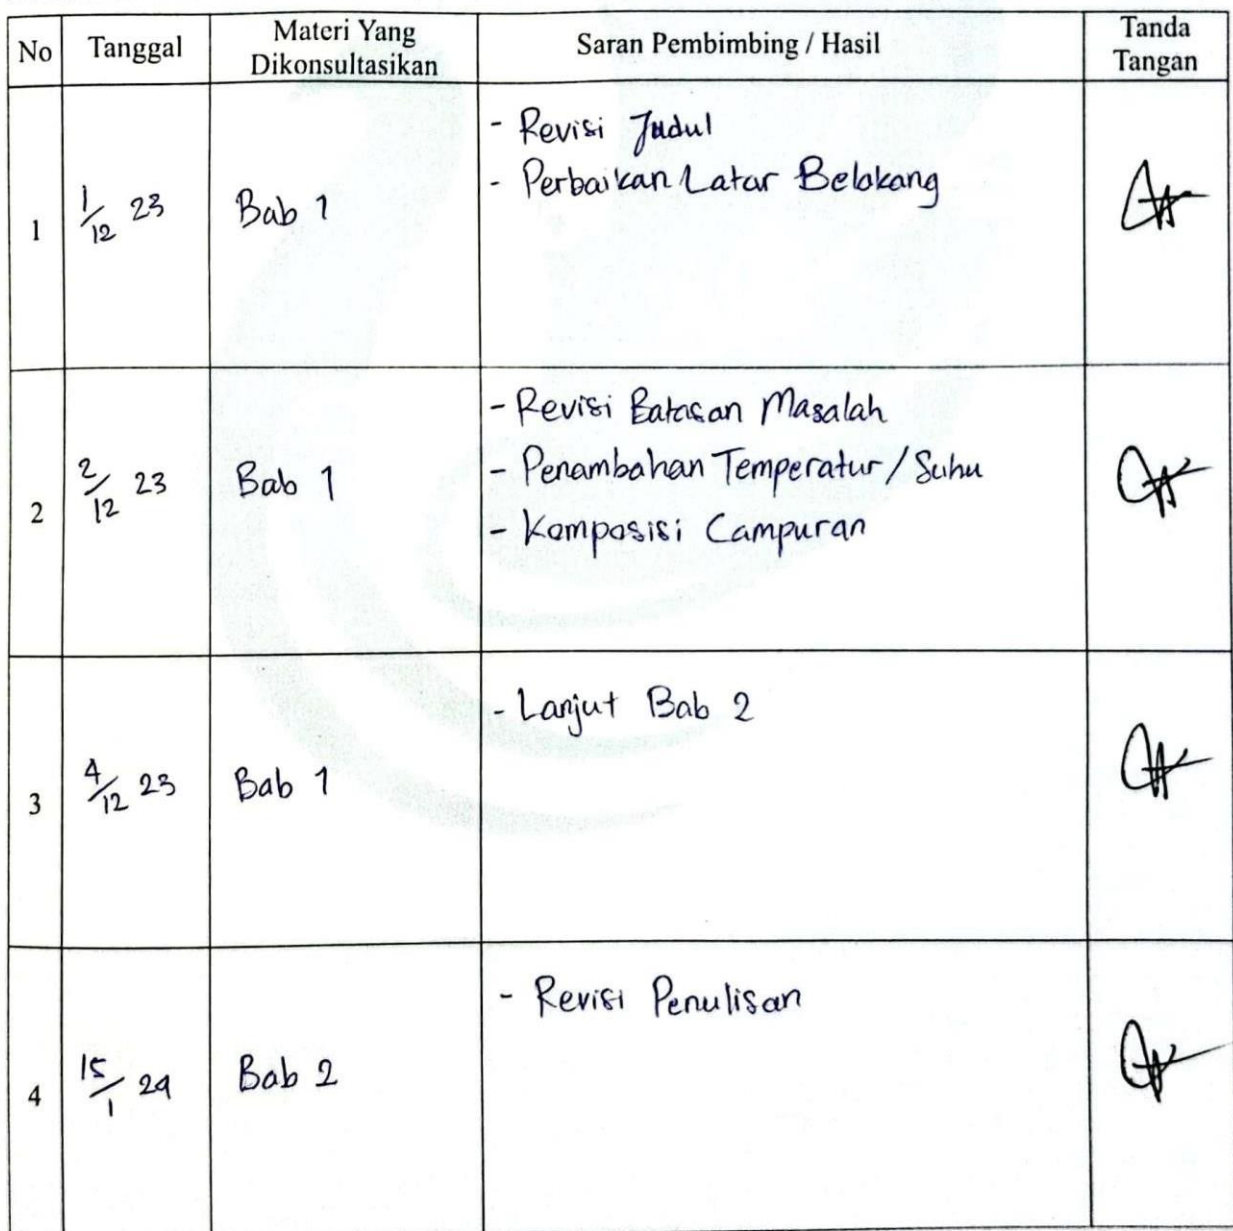 No Tanggal Materi Yang Dikonsultasikan Saran Pembimbing / Hasil Tanda Tangan
1 1/12 23 Bab 1
- Revisi Judul
- Perbaikan Latar Belakang
2 2/12 23 Bab 1
- Revisi Batasan Masalah
- Penambahan Temperatur / Suhu
- Komposisi Campuran
3 4/12 23 Bab 1
- Lanjut Bab 2
4 15/1 24 Bab 2
- Revisi Penulisan